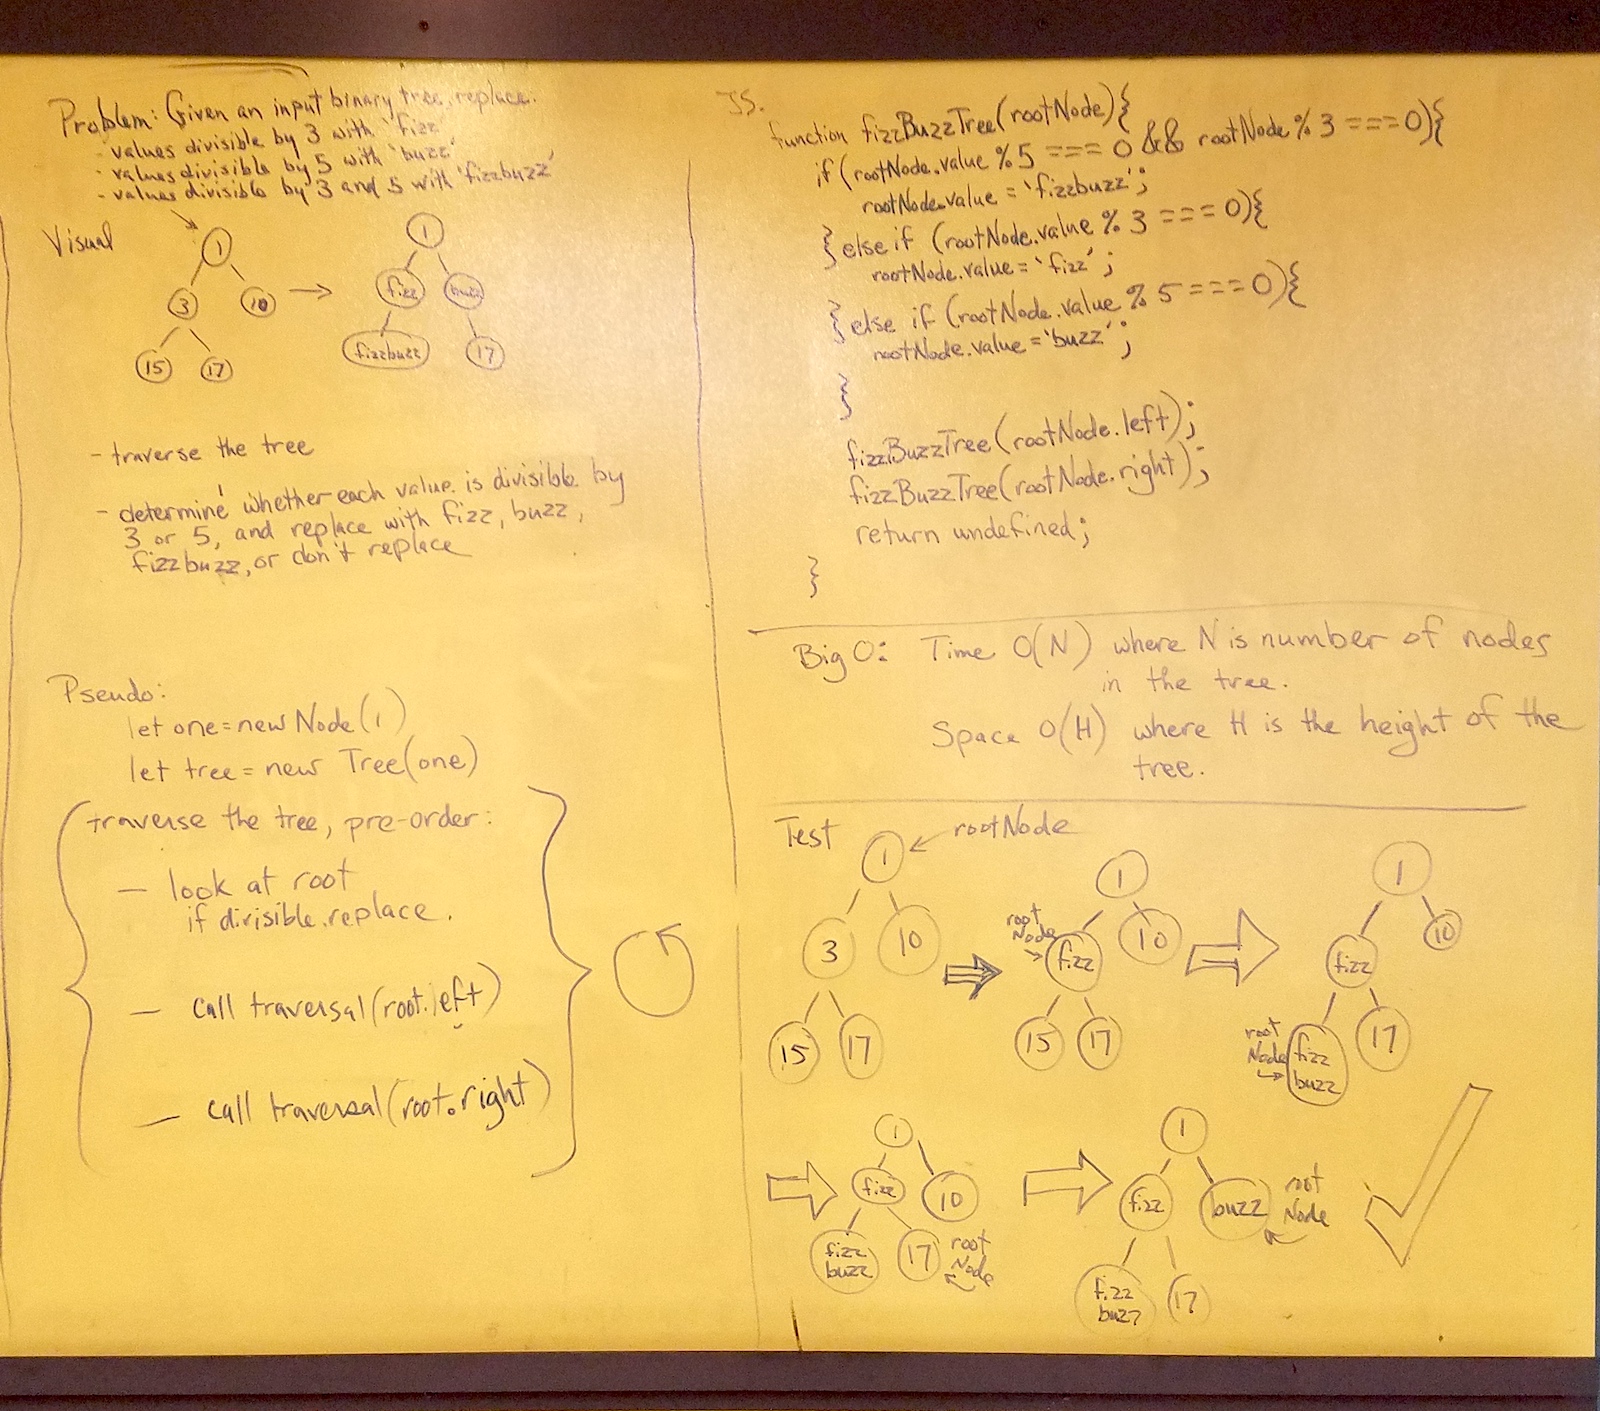 Problem: Given an input binary tree, replace:
- values divisible by 3 with 'fizz'
- values divisible by 5 with 'buzz'
- values divisible by 3 and 5 with 'fizzbuzz'
Visual
1
3 10
15 17
1
fizz buzz
fizzbuzz 17
- traverse the tree
- determine whether each value is divisible by
3 or 5, and replace with fizz, buzz,
fizzbuzz, or don't replace
Pseudo:
let one = new Node(1)
let tree = new Tree(one)
traverse the tree, pre-order:
- look at root
if divisible, replace.
- call traversal(root.left)
- call traversal(root.right)
JS.
function fizzBuzzTree(rootNode){
if (rootNode.value % 5 === 0 && rootNode % 3 === 0){
rootNode.value = 'fizzbuzz';
}else if (rootNode.value % 3 === 0){
rootNode.value = 'fizz';
}else if (rootNode.value % 5 === 0){
rootNode.value = 'buzz';
}
fizzBuzzTree(rootNode.left);
fizzBuzzTree(rootNode.right);
return undefined;
}
Big O: Time O(N) where N is number of nodes
in the tree.
Space O(H) where H is the height of the
tree.
Test
rootNode
1
3 10
15 17
1
root
Node
fizz 10
15 17
1
fizz 10
root
Node
fizz
buzz
17
1
fizz 10
fizz
buzz
17
root
Node
1
fizz buzz
root
Node
fizz
buzz
17